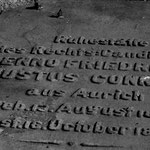 Ruhestätte
des Rechts:Cand:
ENNO FRIEDR
USTUS CONR
aus Aurich
geb. 13. August 18
October 18